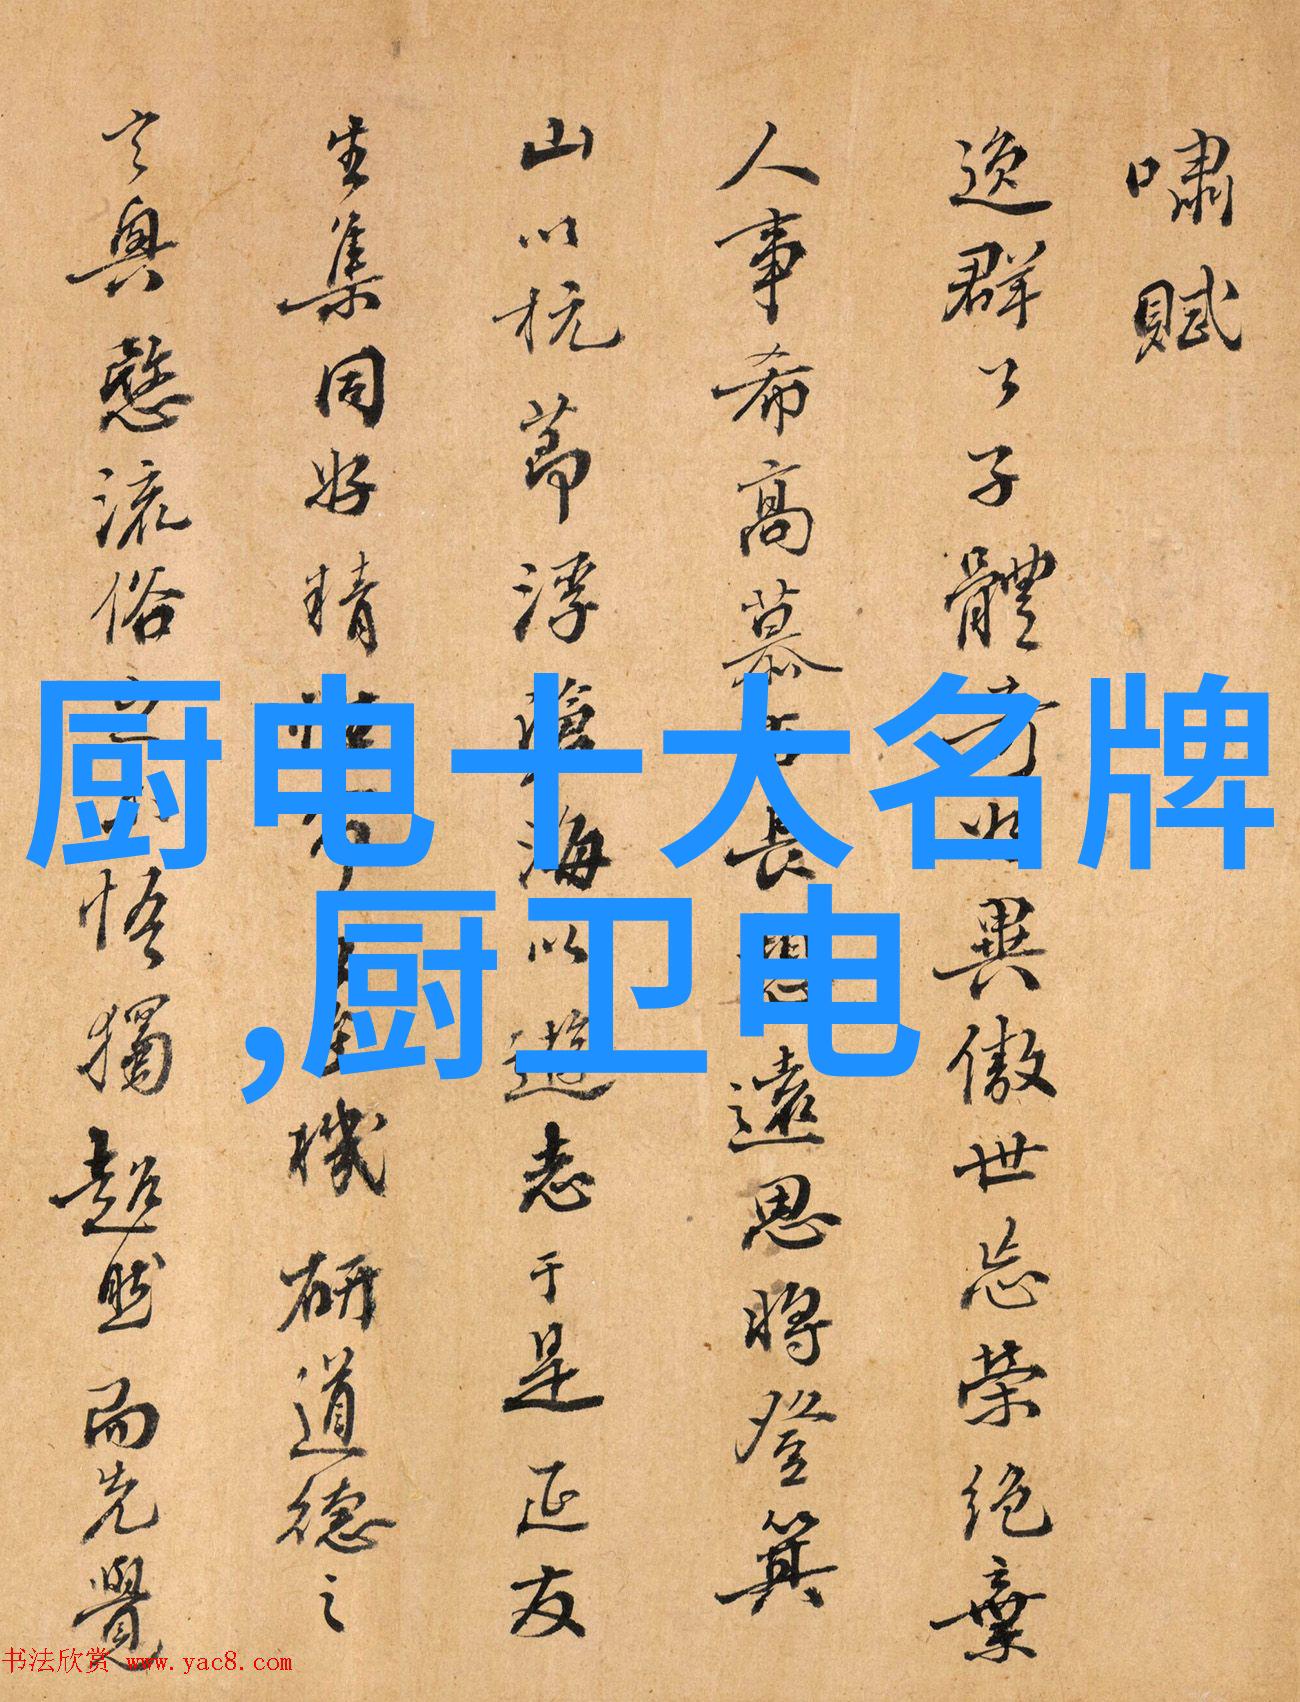 嘯賦
逸群公子體奇異傲世忘榮絕棄
人事希高慕長想遠思將登箕
山以抗節浮滄海以遊志于是延友
生集同好精至機研道德之
玄奧愍流俗悟獨超然而先覺
厨电十大名牌
,厨卫电
书法欣赏 www.yac8.com